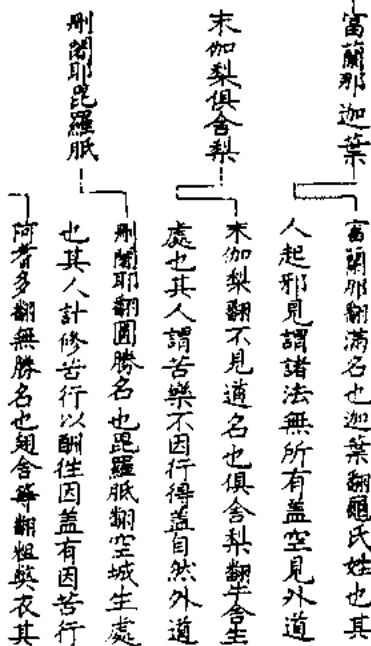 富蘭那迦葉
富蘭那翻滿名也迦葉翻龜氏姓也其
人起邪見謂諸法無所有盖空見外道
末伽梨俱舍梨
末伽梨翻不見道名也俱舍梨翻牛舍生
處也其人謂苦樂不因行得盖自然外道
刪闍耶毘羅胝
刪闍耶翻圓勝名也毘羅胝翻空城生處
也其人計修苦行以酬性因盖有因苦行
阿耆多翻無勝名也翅舍等翻粗弊衣其